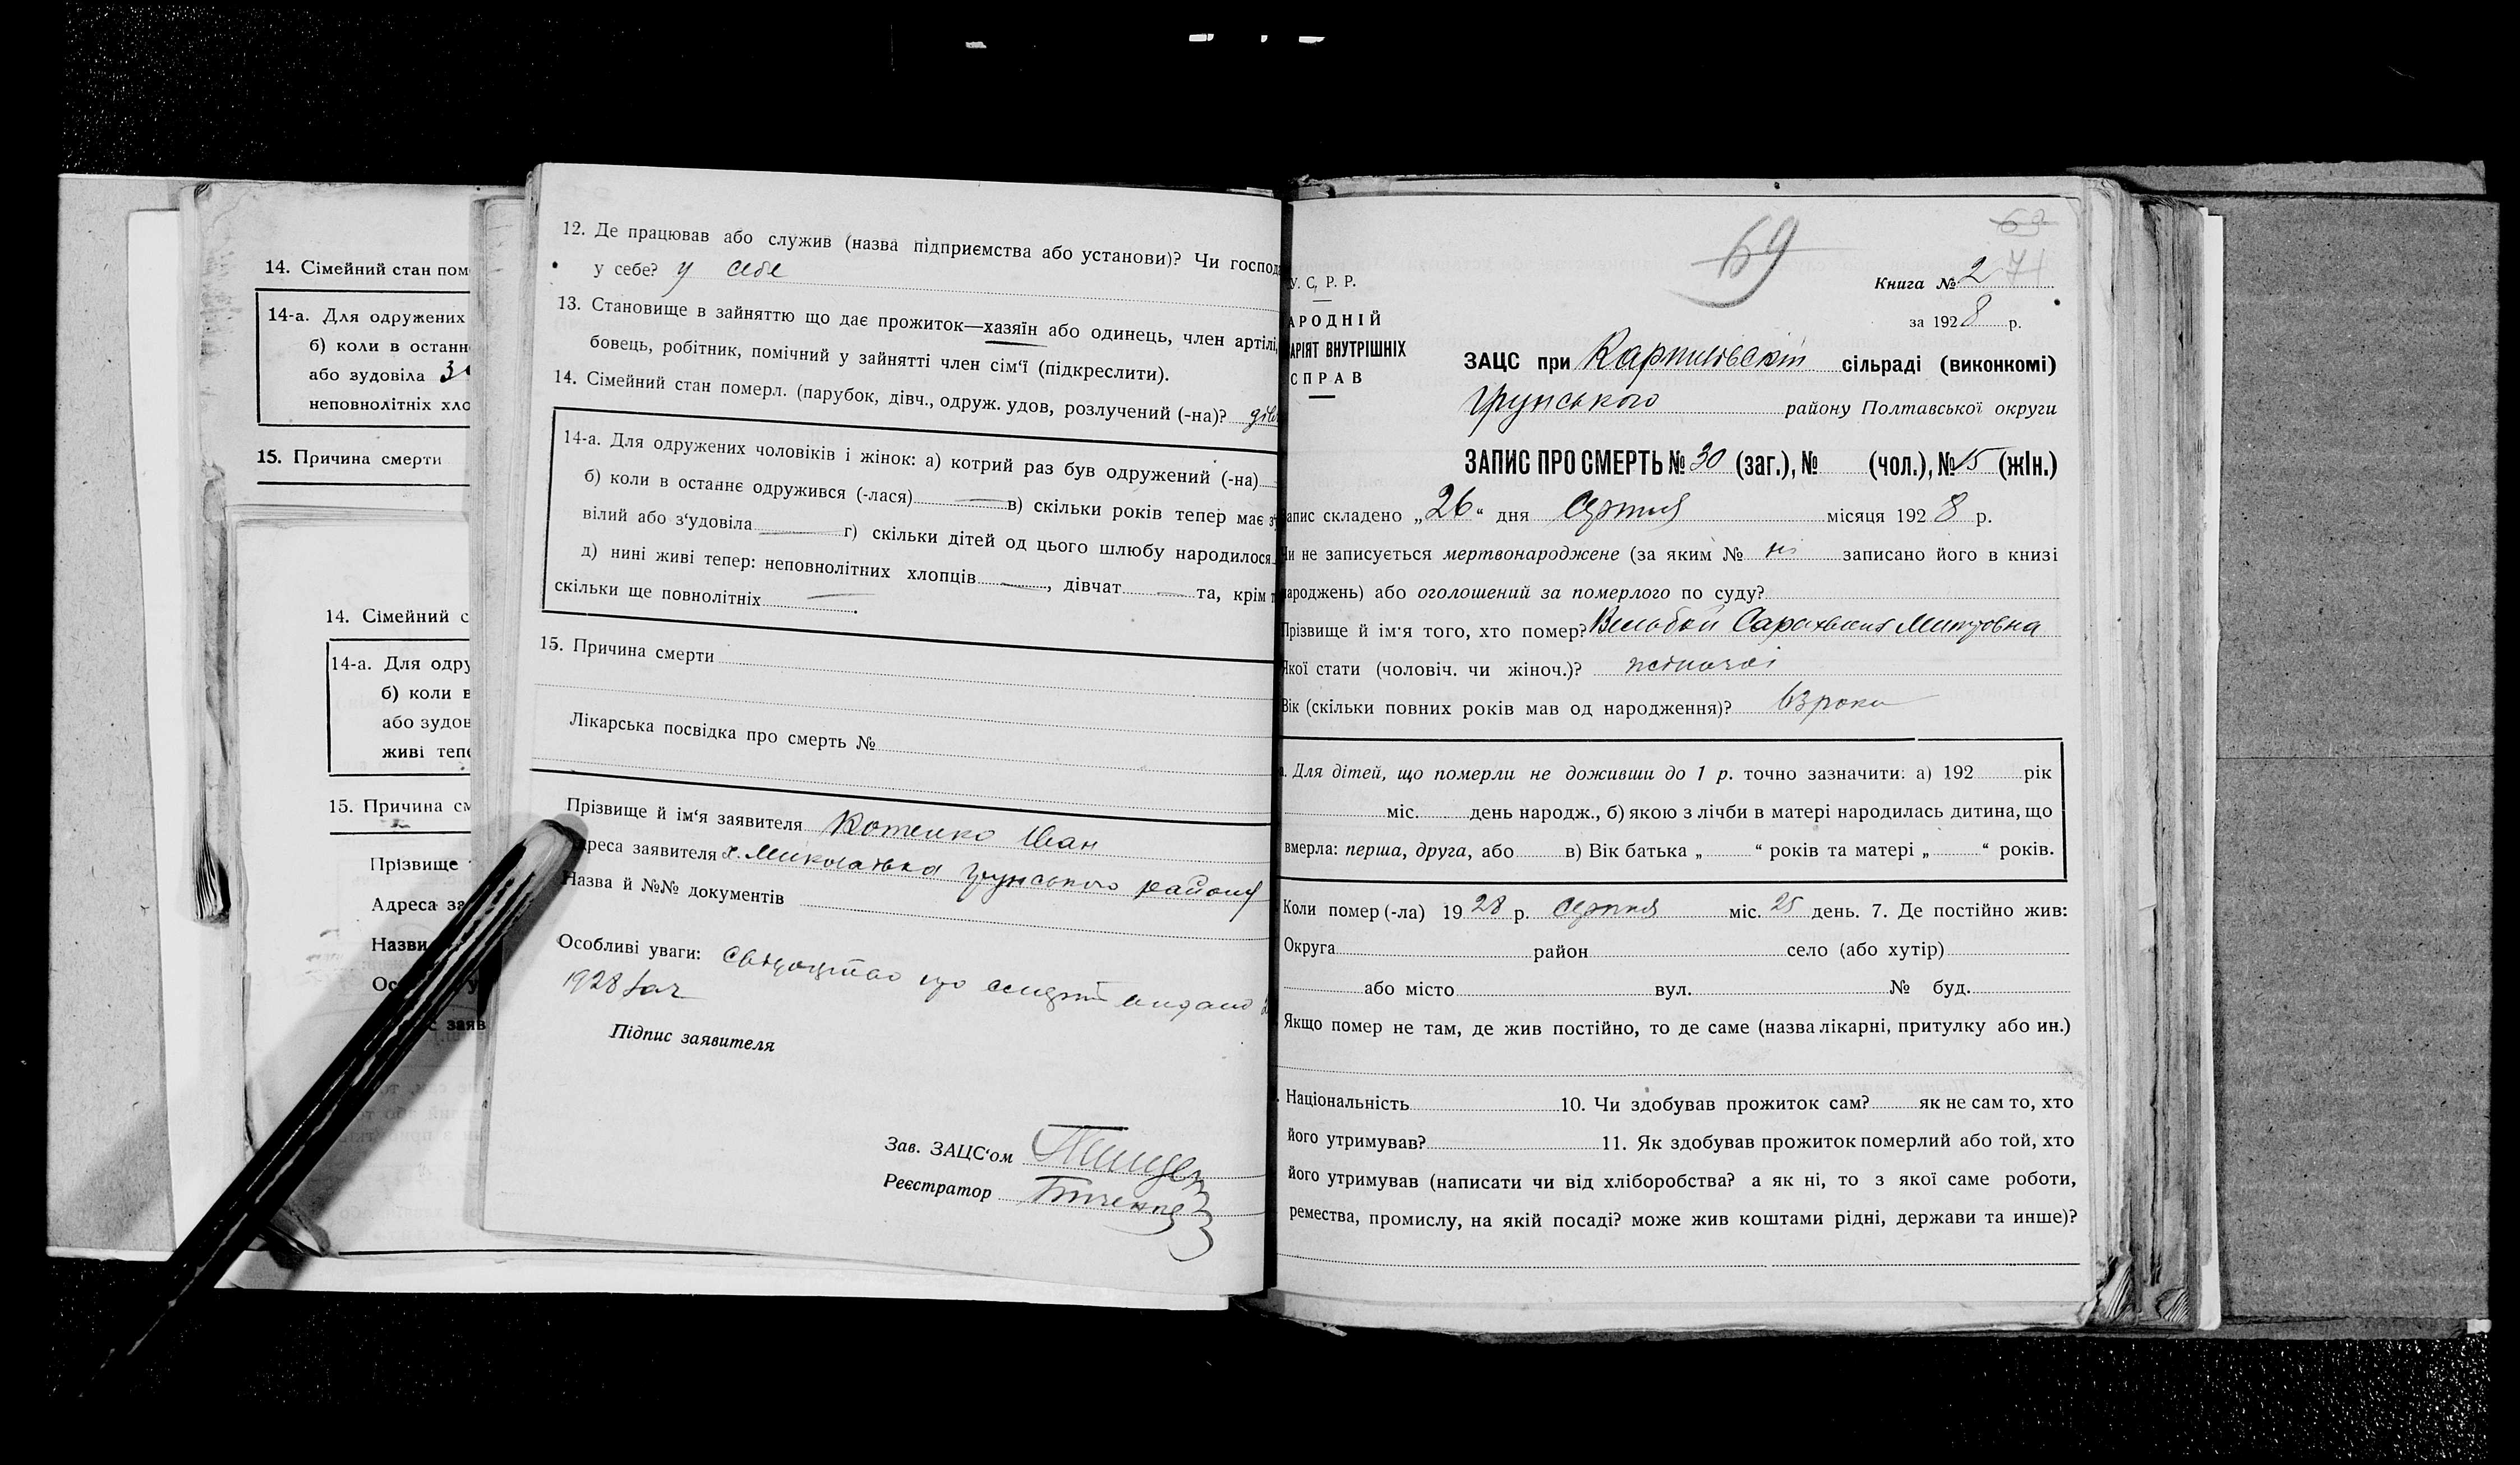 14. Сімейний стан пом
14-а. Для одружених
б) коли в останн
або зудовіла
неповнолітніх хло
15. Причина смерти
14. Сімейний с
14-а. Для одру
б) коли в
або зудов
живі тепе
15. Причина см
Прізвище
Адреса за
Назви
Ос
заяв
12. Де працював або служив (назва підприємства або установи)? Чи господ
у себе? у себе
13. Становище в зайняттю що дає прожиток—хазяїн або одинець, член артілі,
бовець, робітник, помічний у зайнятті член сім‘ї (підкреслити).
14. Сімейний стан померл. (парубок, дівч., одруж. удов, розлучений (-на)?
14-а. Для одружених чоловіків і жінок: а) котрий раз був одружений (-на)
б) коли в останнє одружився (-лася) в) скільки років тепер має з
вілий або з‘удовіла г) скільки дітей од цього шлюбу народилося
д) нині живі тепер: неповнолітних хлопців, дівчат та, крім т
скільки ще повнолітніх.
15. Причина смерти
Лікарська посвідка про смерть №
Прізвище й ім‘я заявителя Котенко Іван
дреса заявителя х. Миколаївка Грунського району
Назва й №№ документів
Особливі уваги: що видано
1928
Підпис заявителя
Зав. ЗАЦС‘ом
Реєстратор
69
69
71
Книга № 2
за 1928 р.
У. С. Р. Р.
АРОДНІЙ
АРІЯТ ВНУТРІШНІХ
СПРАВ
ЗАЦС при сільраді (виконкомі)
Грунського району Полтавської округи
ЗАПИС ПРО СМЕРТЬ № 30 (заг.), № (чол.), № 15 (жін.)
апис складено „26“ дня Серпня місяця 1928 р.
Чи не записується мертвонароджене (за яким № ні записано його в книзі
народжень) або оголошений за померлого по суду?
Прізвище й ім‘я того, хто помер?
Якої стати (чоловіч. чи жіноч.)? жіночої
Вік (скільки повних років мав од народження)? 63 роки
. Для дітей, що померли не доживши до 1 р. точно зазначити: а) 192 рік
міс. день народж., б) якою з лічби в матері народилась дитина, що
вмерла: перша, друга, або в) Вік батька „ “ років та матері „ “ років.
Коли помер (-ла) 1928 р. Серпня міс. 25 день. 7. Де постійно жив:
Округа район село (або хутір)
або місто вул. № буд.
Якщо помер не там, де жив постійно, то де саме (назва лікарні, притулку або ин.)
. Національність 10. Чи здобував прожиток сам? як не сам то, хто
його утримував? 11. Як здобував прожиток померлий або той, хто
його утримував (написати чи від хліборобства? а як ні, то з якої саме роботи,
ремества, промислу, на якій посаді? може жив коштами рідні, держави та инше)?